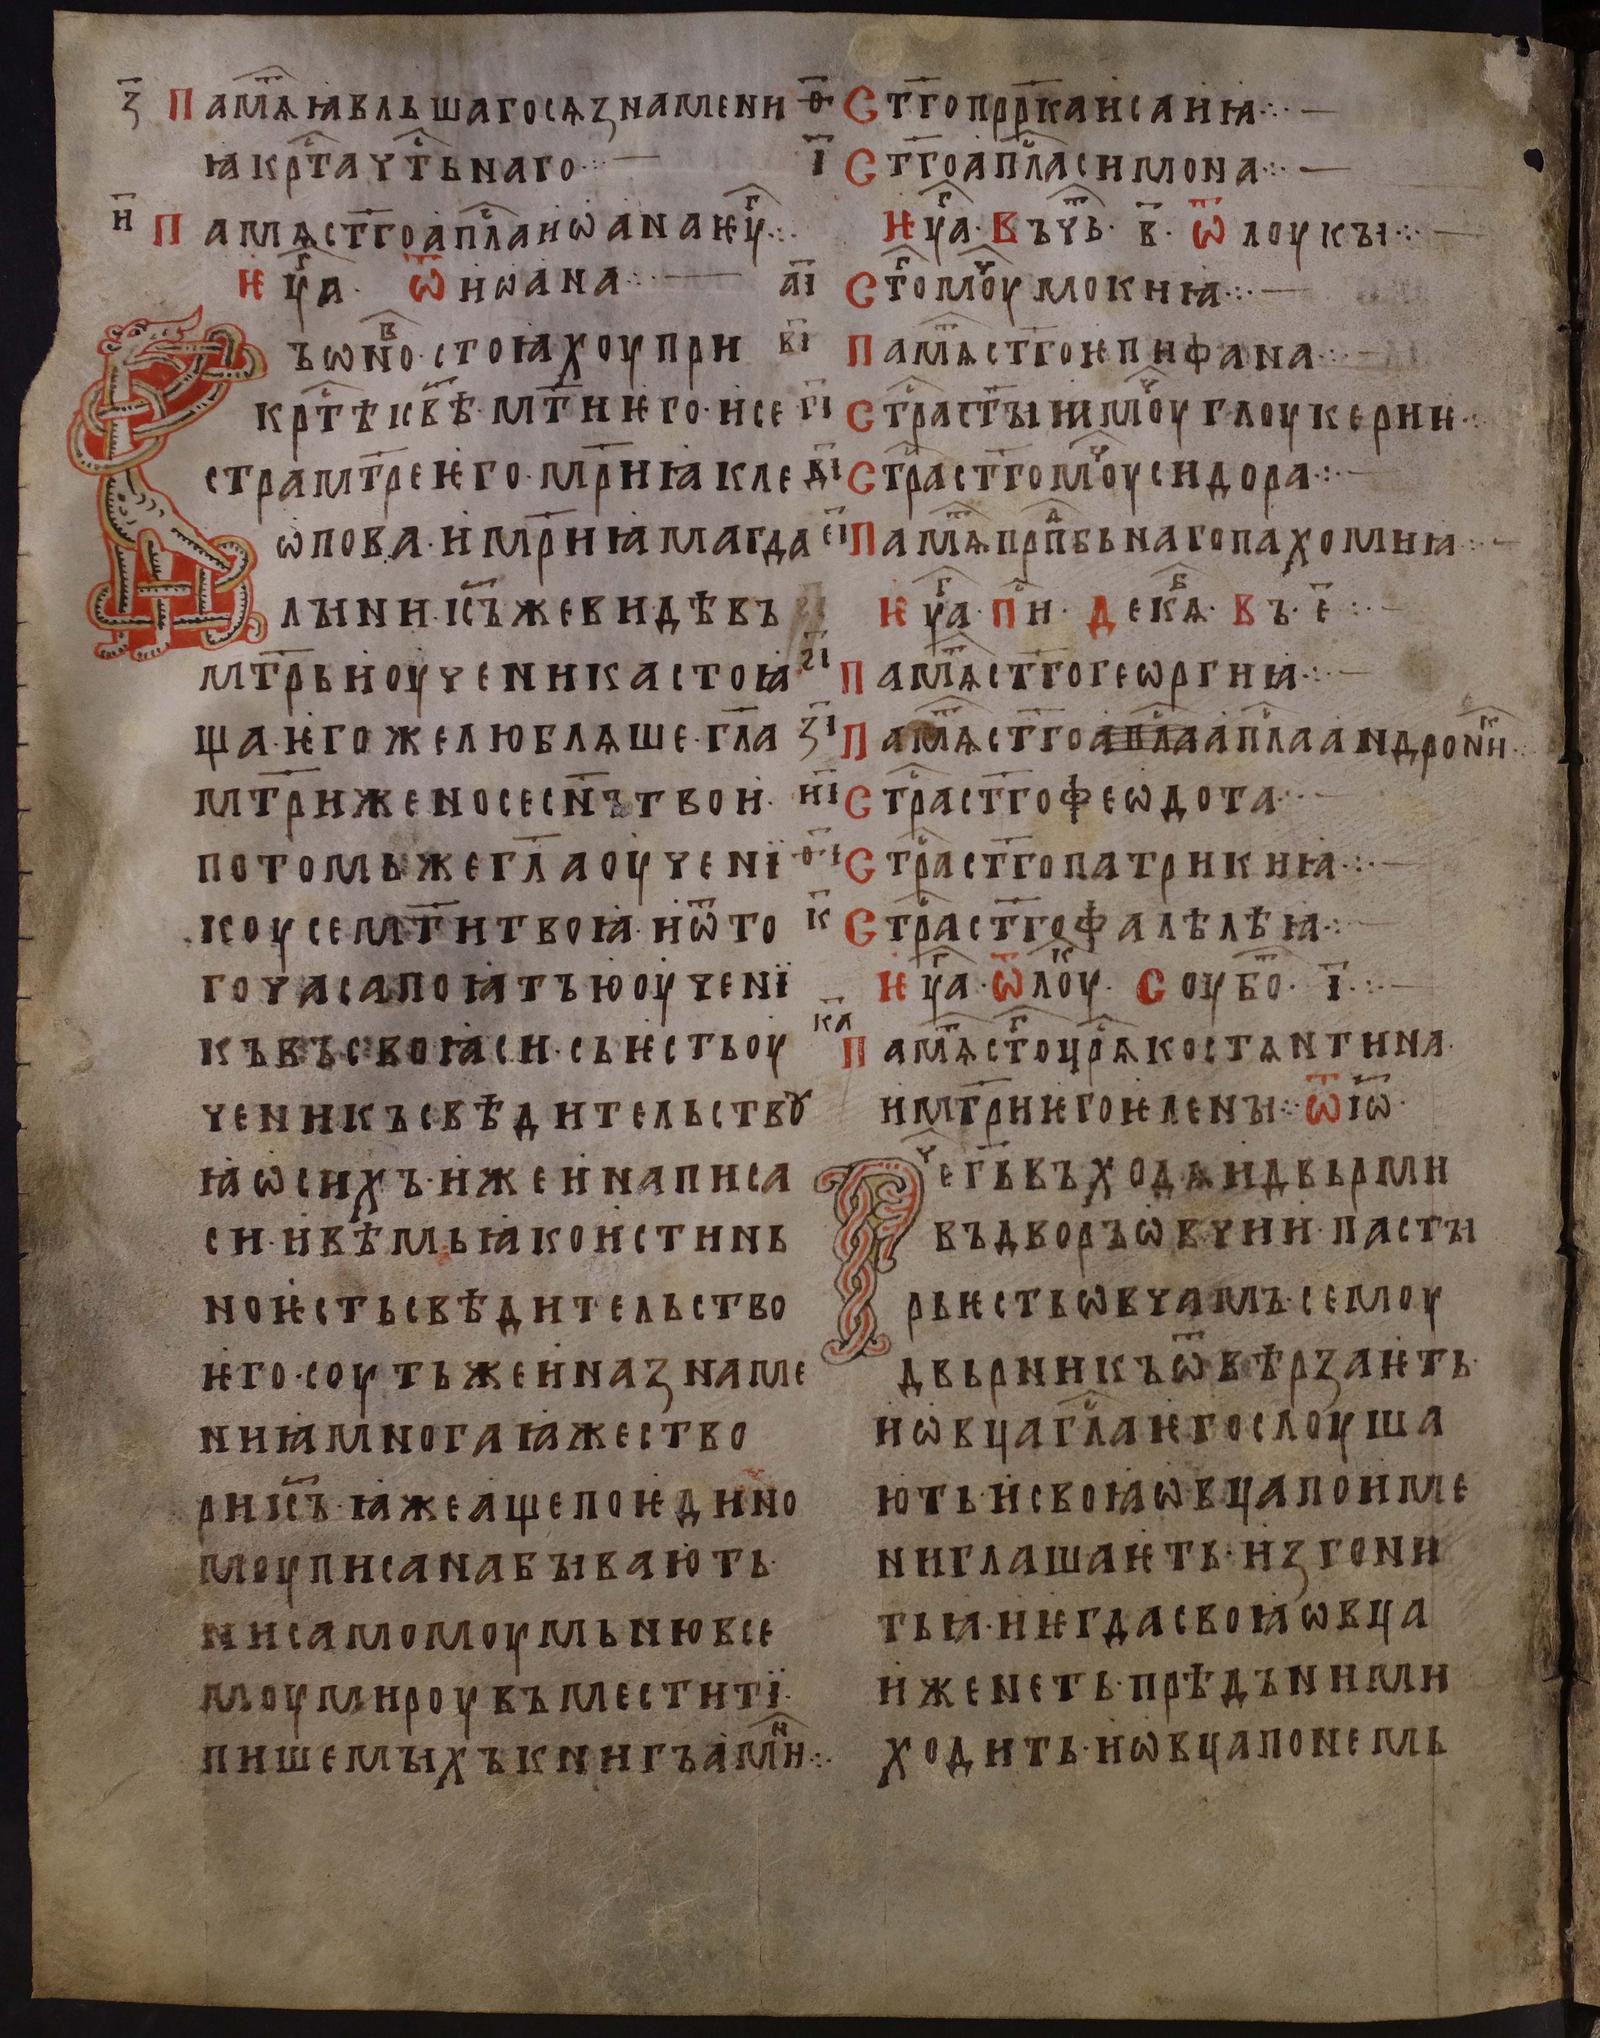 з҃ Пам̑ѧꙗвльшагосѧзнамени
ꙗкрⷭ҇таꙋⷭ҇тьнаго
н҃ Памѧст҃гоапⷭ҇лаиѡанаѥуⷢ҇
Ѥуⷢ҇а. ѿиѡана
Въѡноⷡ. стоꙗхоупри
крⷭ҇тѣісв҃ѣ. мт҃иѥго. исе
страмт҃реѥго. мр҃иꙗкле
ѡпова. имр҃иꙗмагда
лыни. іс҃ъжевидѣвъ
мт҃рьиоученикастоꙗ
ща. ѥгожелюблѧше. гл҃а
мт҃риженосесн҃ътвои.
потомьжегл҃аоучені
коусемт҃итвоꙗ. иѿто
гочасапоꙗтъюоучені
къвъсвоꙗси. сьѥстьоу
ченикъсвѣдительствꙋ
ꙗѡсихъ. ижеинаписа
си. ивѣмьꙗкоистинь
ноѥстьсвѣдительство
ѥго. соутьжеиназнаме
ниꙗмногаꙗжество
риіс҃ъ. ꙗжеащепоѥдино
моуписанабывають
нисамомоумьнювсе
моумироувъместиті.
пишемыхъкнигъам̑ин
ѳ҃ Ст҃гопрⷪ҇ркаисаниꙗ
і҃ Ст҃гоапⷭ҇ласимона
Ѥуⷢ҇а. Въчтⷡ҇ь. в҃. ѿ лоукы
а҃і Стⷢ҇омоⷱ҇умокиꙗ
в҃і Памѧст҃гоѥпифана
г҃і Стрⷭ҇аст҃ыимⷱ҇оуглоукерии
д҃і Стрⷭ҇аст҃гомⷱ҇оусидора
е҃і Памѧпрпⷣбьнагопахомиꙗ
Ѥуⷢ҇а. пⷭ҇и. декⷡ҇ѧ. въ. е҃
ѕ҃і Памѧст҃гогеѡргиꙗ
з҃і Памѧст҃гоапⷭ҇лаапⷭ҇лаандроникⷦ
н҃і Стрⷭ҇аст҃гоѳеѡдота
ѳ҃і Стрⷭ҇аст҃гопатрикиꙗ
к҃ Стрⷭ҇аст҃гофалѣлѣꙗ
Ѥуⷢ҇а. ѿлоуⷦ. Соубⷪ҇. і҃
к҃а Памѧстⷢ҇оцрⷭ҇ѧкостѧнтина
имт҃риѥгоѥлены ѿіѡ҃
Речег҃ьвъходѧидвьрми
въдворъѡвчии. пасты
рьѥстьѡвчамъ. семоу
двьрникъѿвѣрзаѥть.
иѡвцаглⷭ҇аѥгослоуша
ють. исвоꙗѡвцапоиме
ниглашаѥть. изгони
тьꙗ. иѥгдасвоꙗѡвца
иженеть. прѣдъними
ходить. иѡвцапонемь